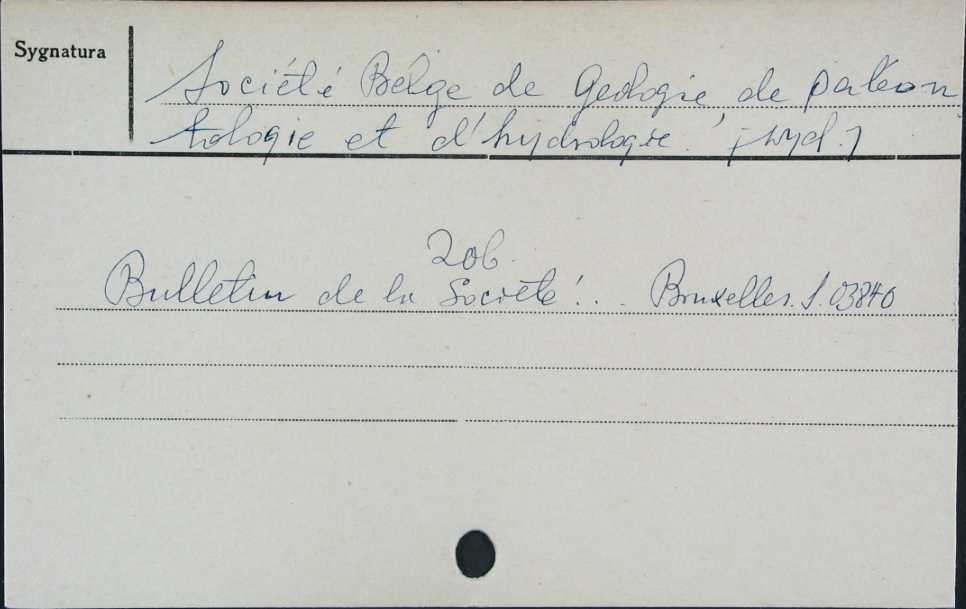 Sygnatura
Société Belge de Geologie, de paleon
tologie et d'hydrologie. [wyd.]
Zob.
Bulletin de la Societé... Bruxelles. S. 03840